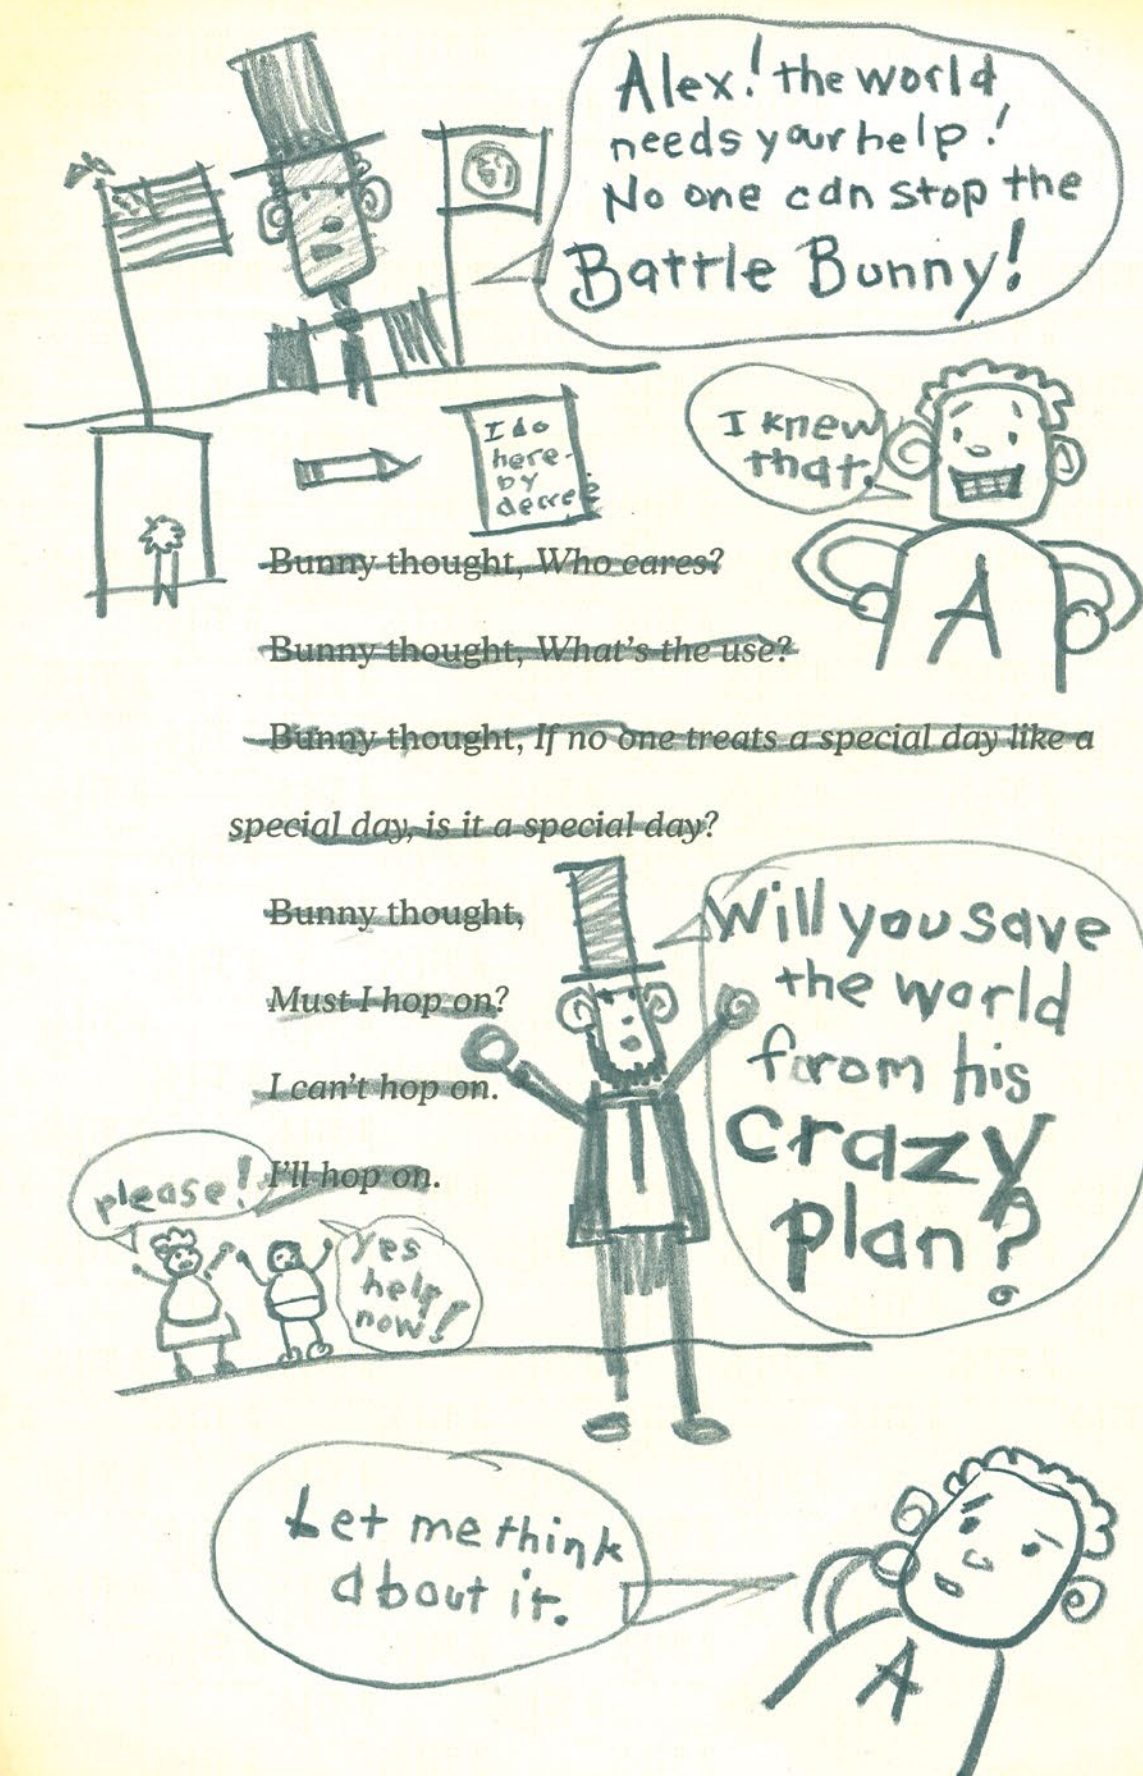 Alex! the world
needs your help!
No one can stop the
Battle Bunny!
I knew
that.
I do
here-
by
decree
A
Bunny thought, Who cares?
Bunny thought, What's the use?
Bunny thought, If no one treats a special day like a
special day, is it a special day?
Bunny thought,
Must I hop on?
I can't hop on.
I'll hop on.
Will you save
the world
from his
crazy
plan?
please!
yes
help
now!
Let me think
about it.
A